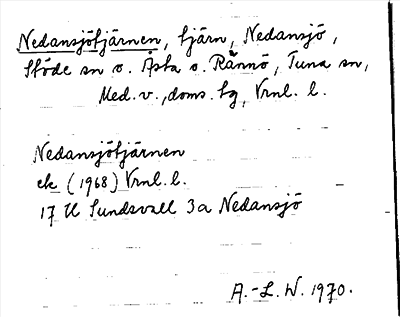 Nedansjötjärnen, tjärn, Nedansjö,
Stöde sn o. Åsta o. Rännö, Tuna sn,
Med. v., doms. tg, Vrnl. l.
Nedansjötjärnen
ek (1968) Vrnl. l.
17 H Sundsvall 3a Nedansjö
A.-L. W. 1970.